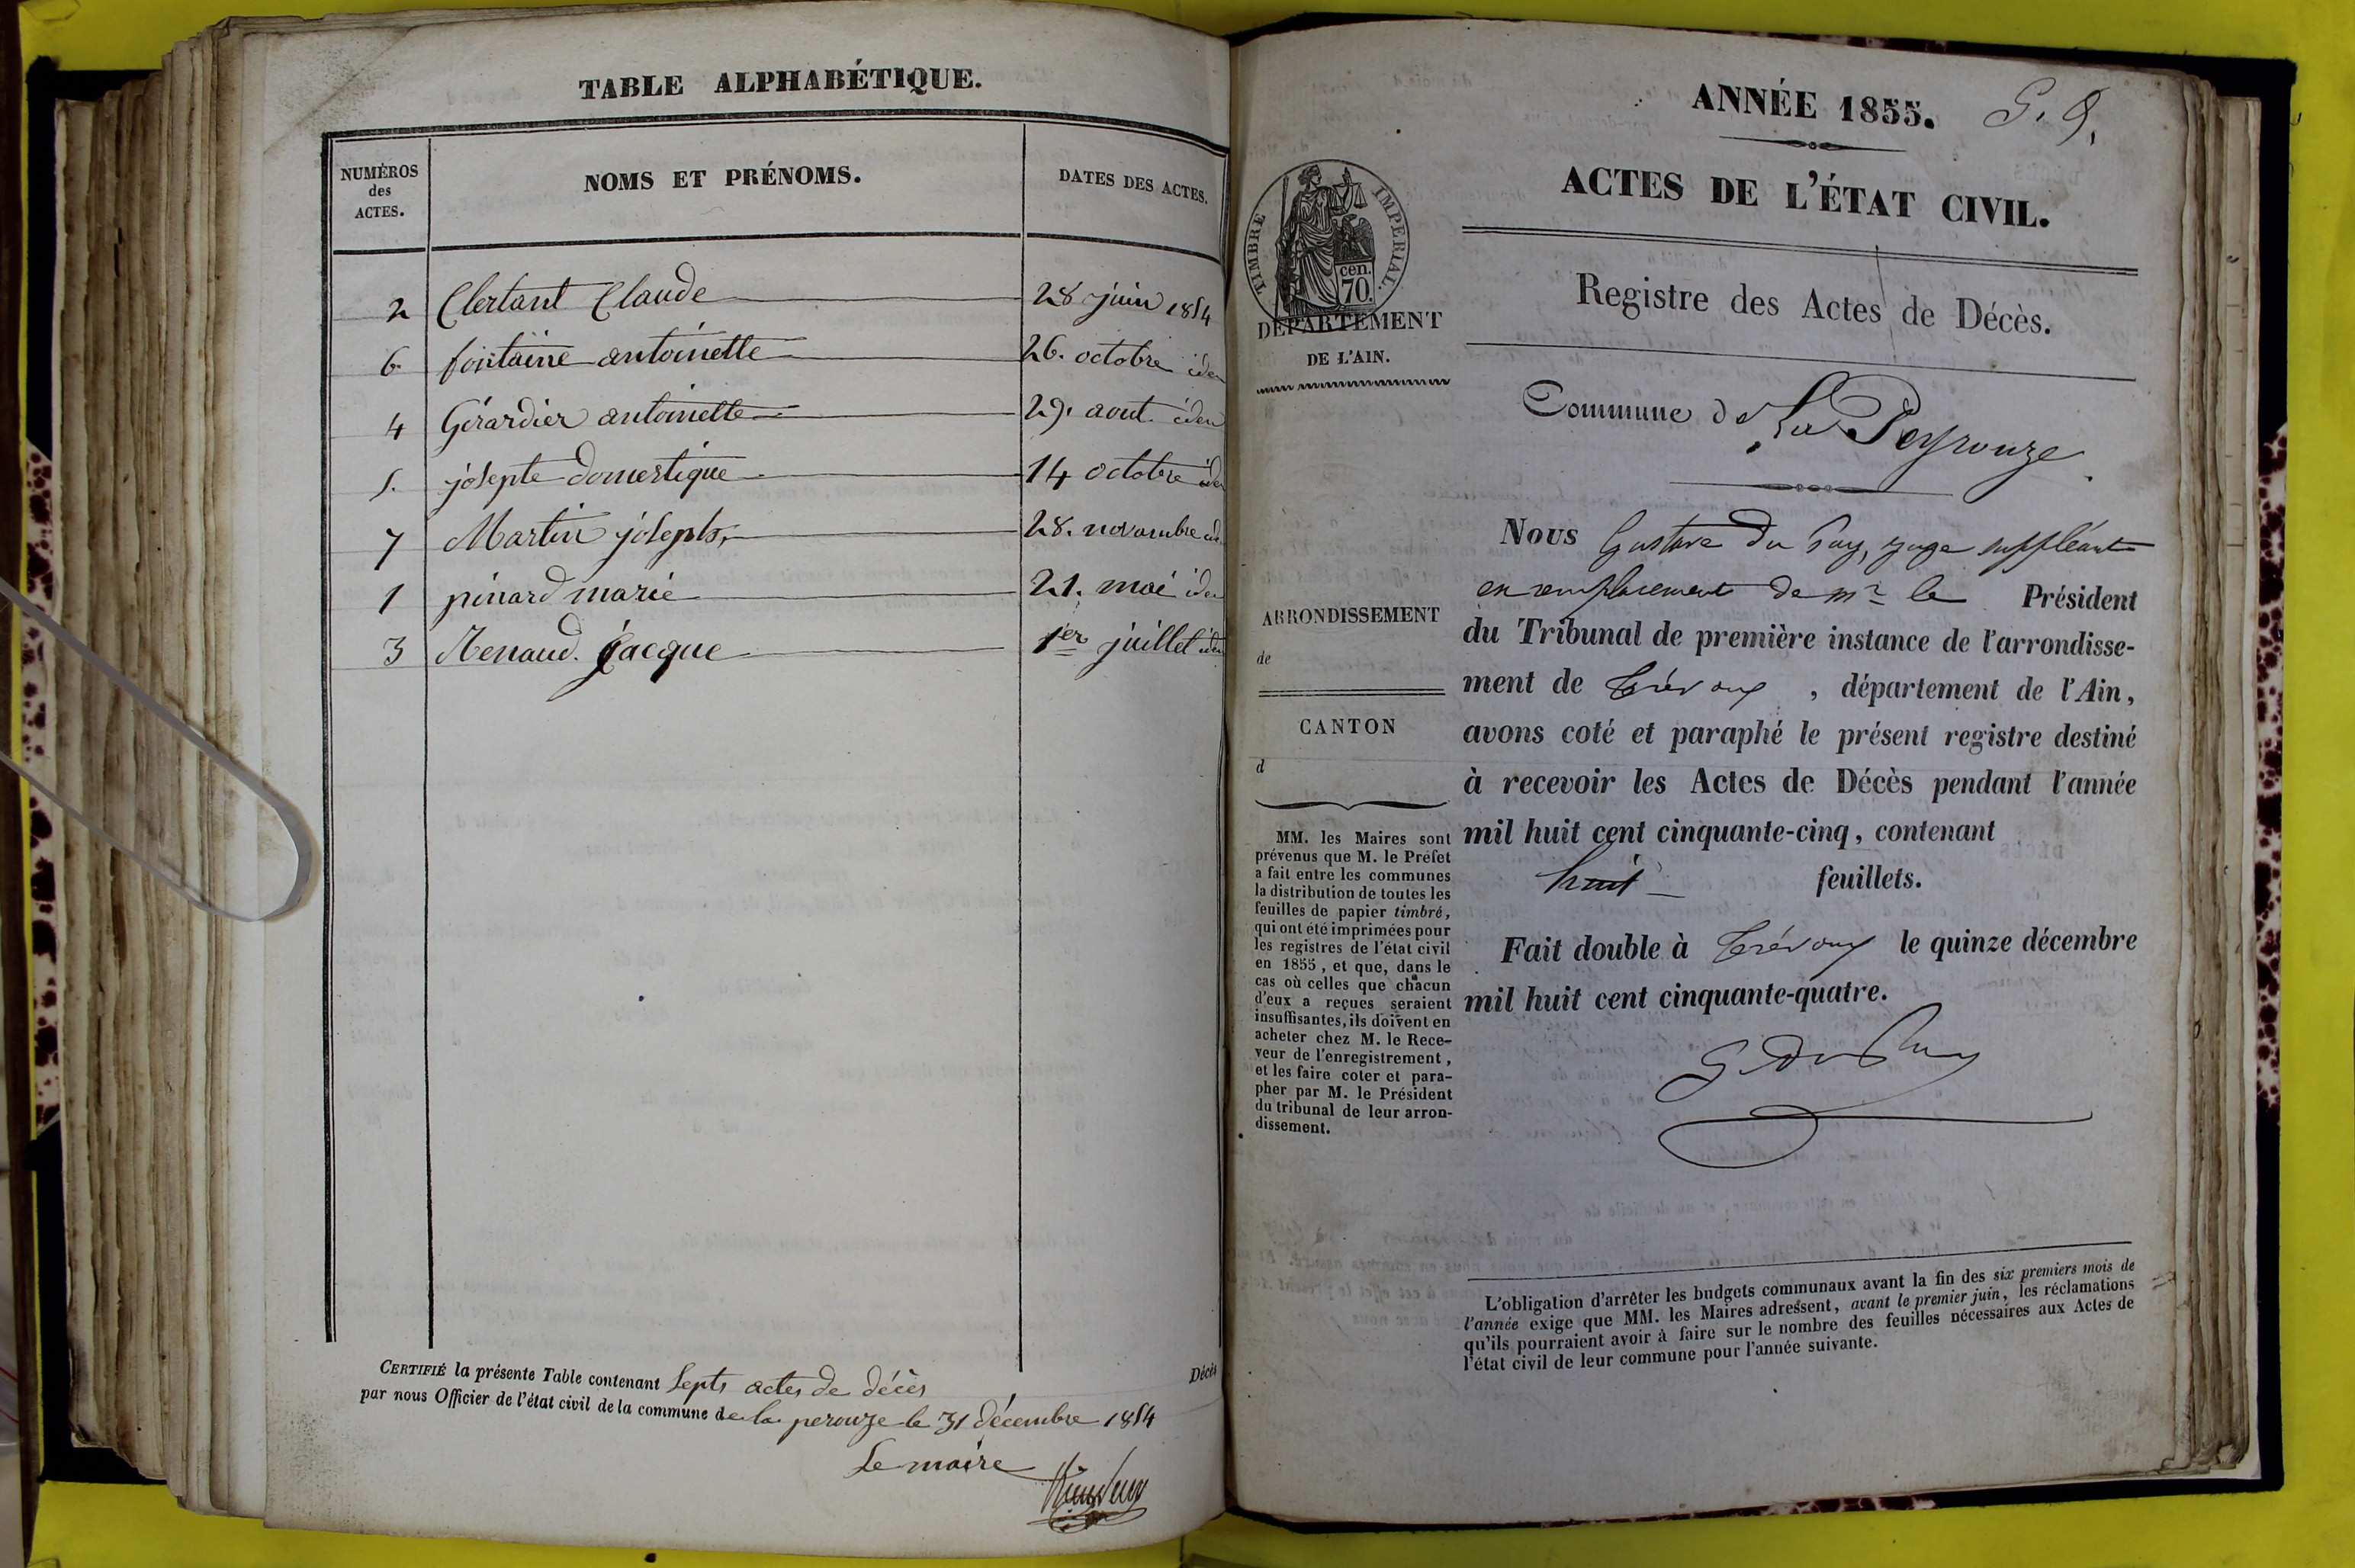 TABLE ALPHABÉTIQUE.
NUMÉROS
des
ACTES.
NOMS ET PRÉNOMS.
DATES DES ACTES.
2 Clertant Claude 28 juin 1854
6 fontaine antoinette 26. octobre idem
4 Gérardier antoinette 29. aout idem
5. josepte domestique 14 octobre idem
7 Martin joseph, 28. novembre idem
1 pinard marie 21. mai idem
3 Renaud. Jacque 1er juillet idem
CERTIFIÉ la présente Table contenant septs actes de décès
Décès
par nous Officier de l'état civil de la commune de la perouze le 31 décembre 1854
Le maire
ANNÉE 1855.
ACTES DE L'ÉTAT CIVIL.
TIMBRE IMPERIAL.
cen.
70.
DÉPARTEMENT
DE L'AIN.
Registre des Actes de Décès.
Commune de La Peyrouze
Nous Gustave Du Puy, juge suppléant
en remplacement de mr le Président
du Tribunal de première instance de l'arrondisse-
ment de Trévoux, département de l'Ain,
avons coté et paraphé le présent registre destiné
à recevoir les Actes de Décès pendant l'année
mil huit cent cinquante-cinq, contenant
huit feuillets.
Fait double à Trévoux le quinze décembre
mil huit cent cinquante-quatre.
G. Du Puy
ARRONDISSEMENT
de
CANTON
d
MM. les Maires sont
prévenus que M. le Préfet
a fait entre les communes
la distribution de toutes les
feuilles de papier timbré,
qui ont été imprimées pour
les registres de l'état civil
en 1855, et que, dans le
cas où celles que chacun
d'eux a reçues seraient
insuffisantes, ils doivent en
acheter chez M. le Rece-
veur de l'enregistrement,
et les faire coter et para-
pher par M. le Président
du tribunal de leur arron-
dissement.
L'obligation d'arrêter les budgets communaux avant la fin des six premiers mois de
l'année exige que MM. les Maires adressent, avant le premier juin, les réclamations
qu'ils pourraient avoir à faire sur le nombre des feuilles nécessaires aux Actes de
l'état civil de leur commune pour l'année suivante.